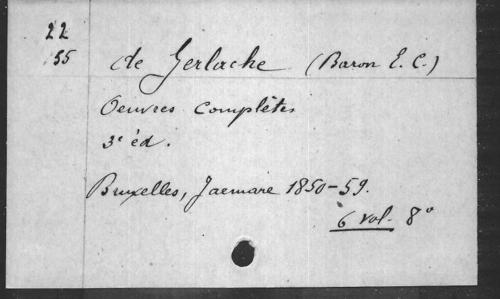 22
55
de Gerlache (Baron E. C.)
Oeuvres complètes
3e éd.
Bruxelles, Jaemare 1850-59.
6 vol. 8°